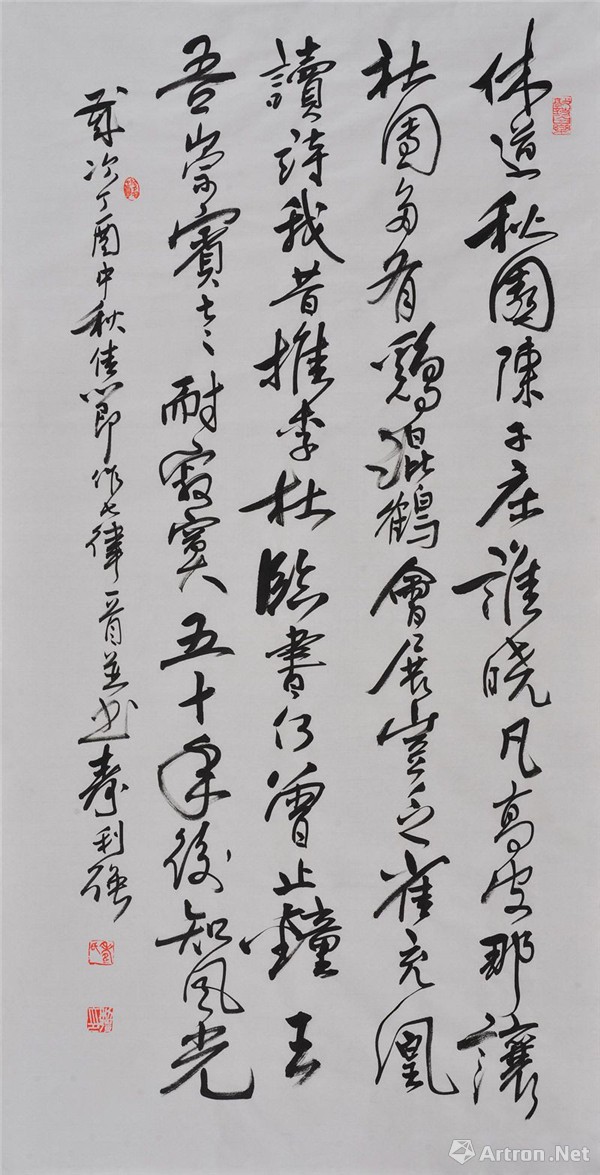 休道秋園陳子庄誰曉凡高那讓
社團多有鷄混鶴會展豈乏雀充凰
讀詩我昔推李杜臨書何曾止鐘王
吾崇賓老耐寂寞五十年後知風光
歲次丁酉中秋佳節作七律一首並書秦利強
Artron.Net